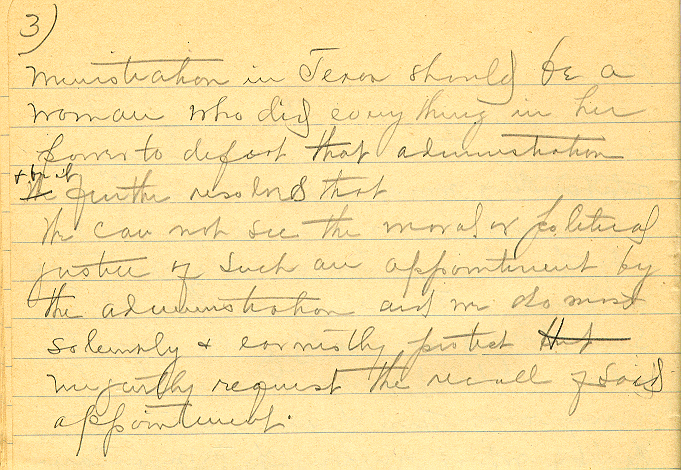 3)
ministration in Texas should be a
woman who did everything in her
power to defeat that administration
+ be it further resolved that
We can not see the moral or political
justice of such an appointment by
the administration and we do most
solemnly + earnestly protest that
urgently request the recall of said
appointment.